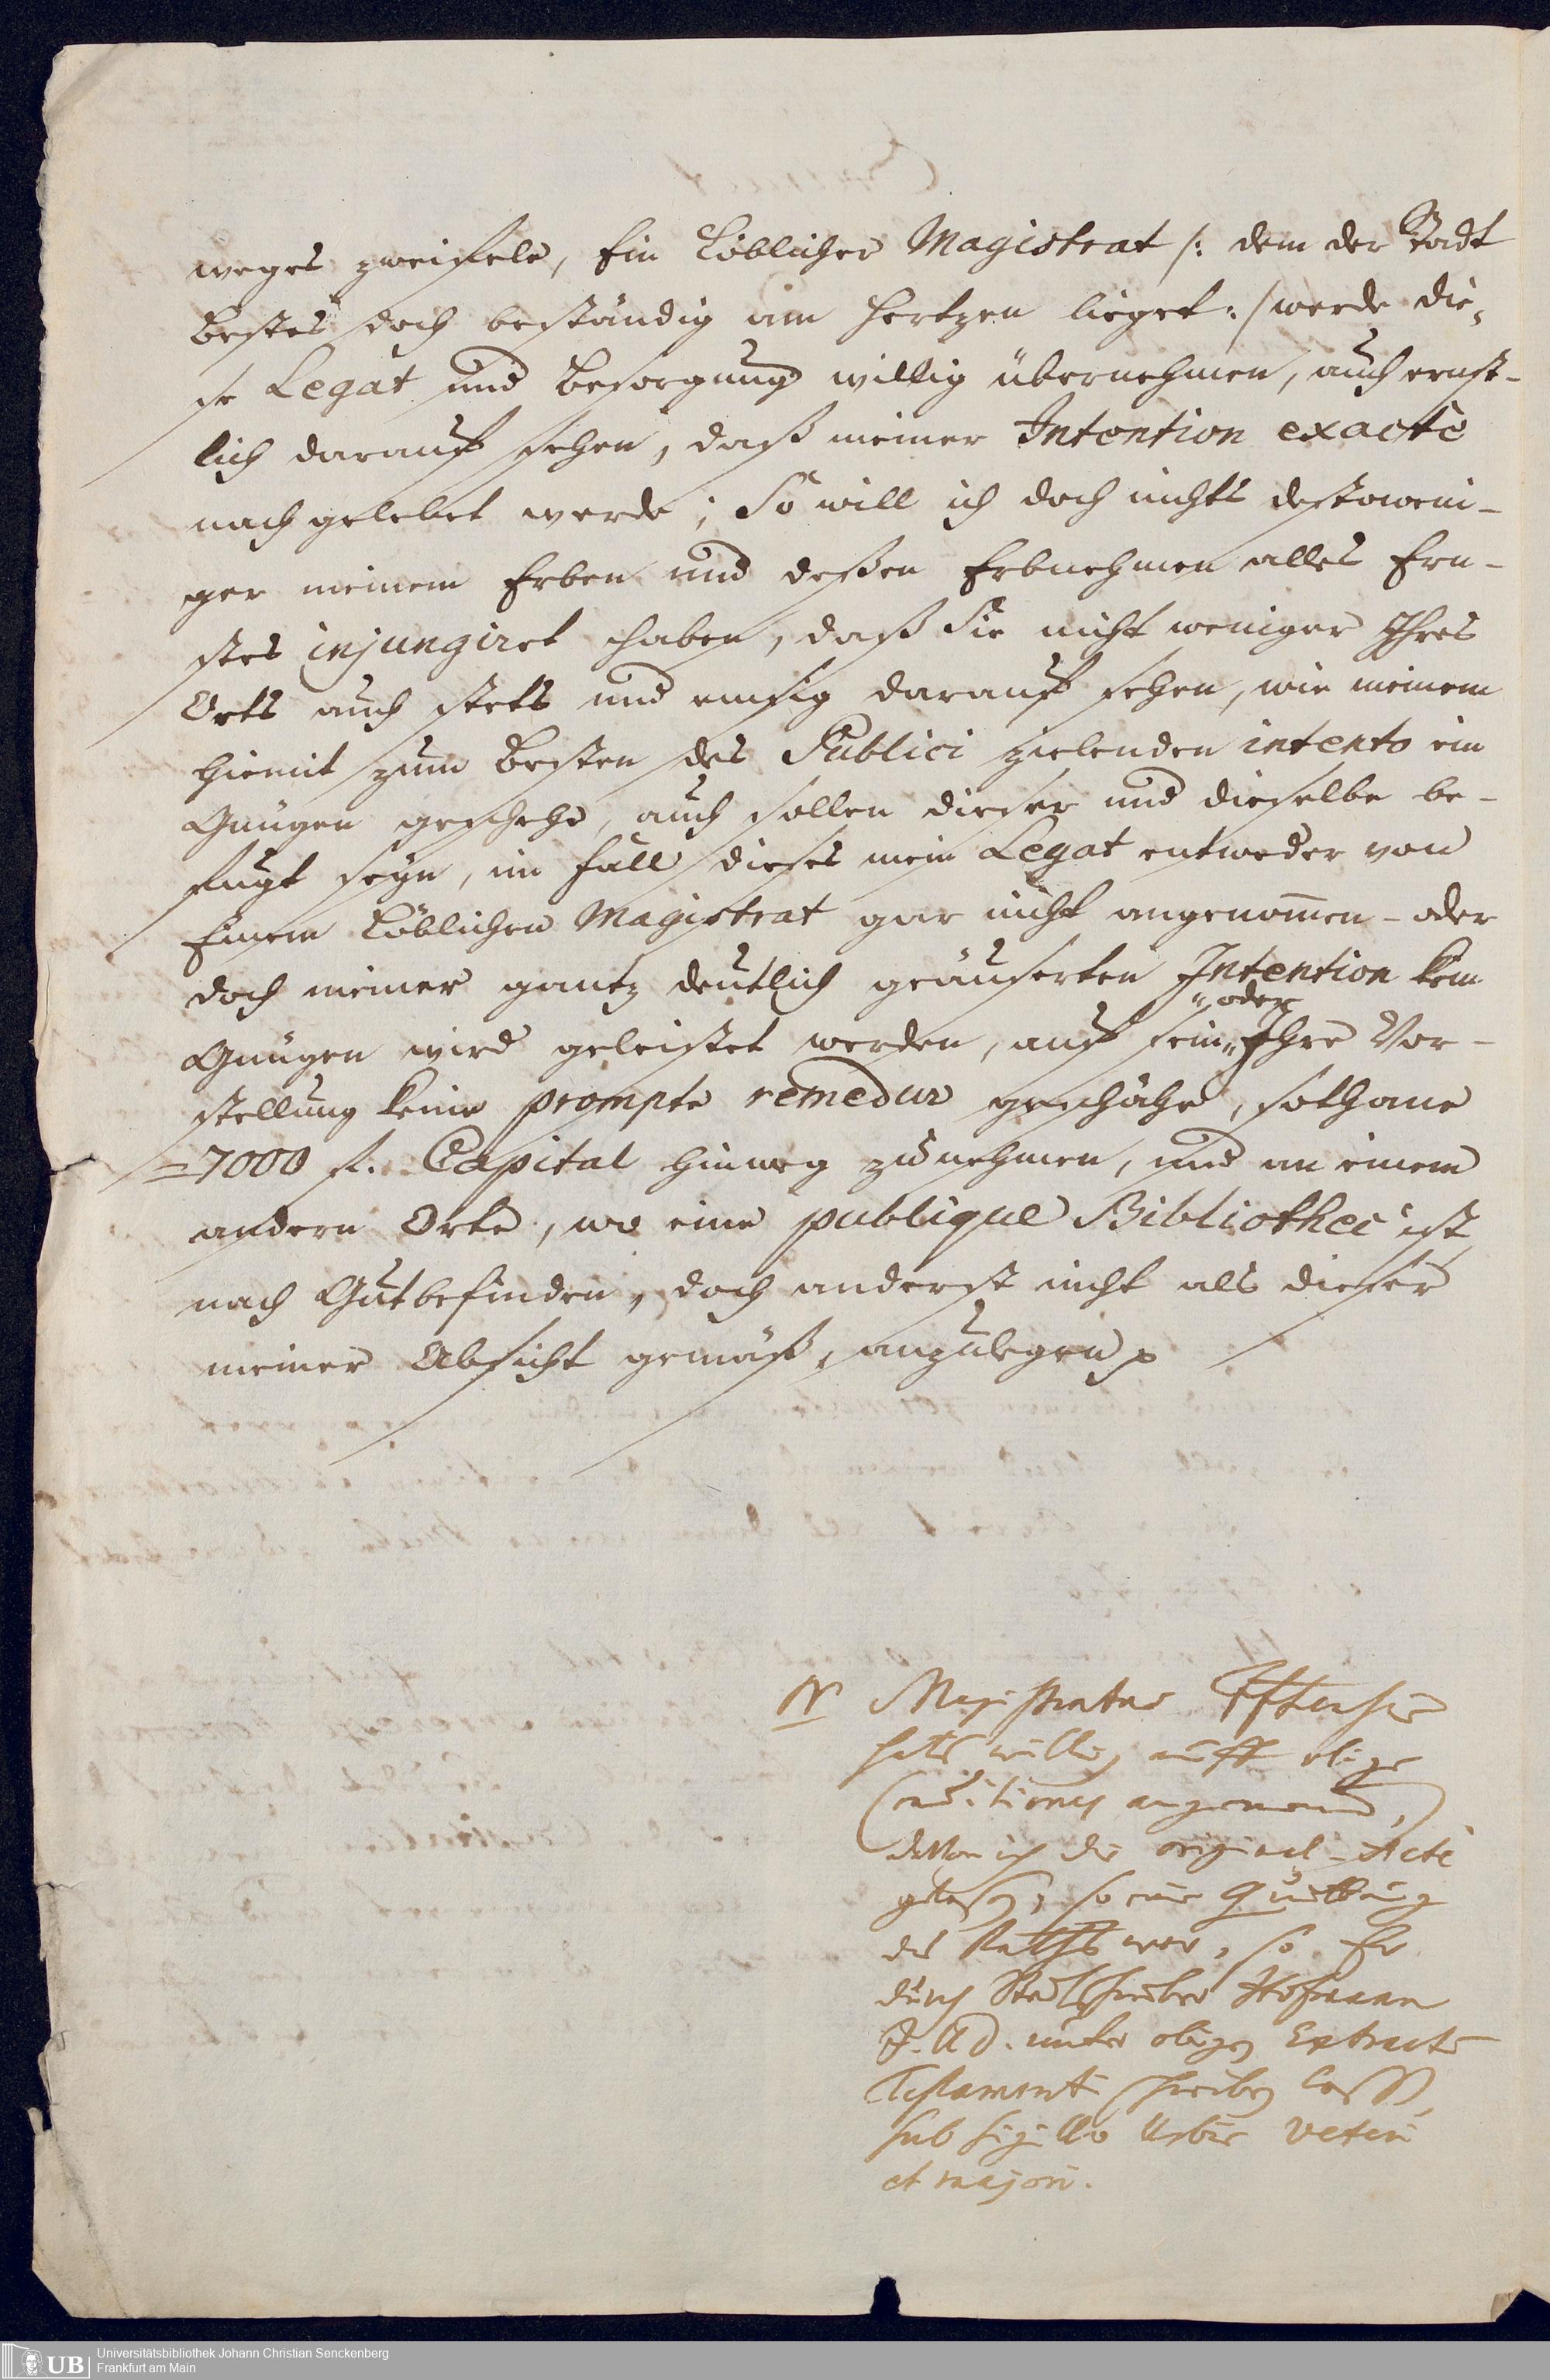 weges zweifele, Ein Löblicher Magistrat /: dem der Stadt
Bestes doch beständig am Hertzen lieget :/ werde die„
se Legat und Besorgung willig übernehmen, auch ernst-
lich darauf sehen, daß meiner Intention exacte
nach gelebet werde; So will ich doch nichts destoweni-
ger meinem Erben und deßen Erbnehmen alles Ern-
stes injungiret haben, daß Sie nicht weniger Ihres
Orts auch stets und emsig darauf sehen, wie meinem
hiemit zum Besten des Publici zielenden intento ein
Gnügen geschehe, auch sollen dieser und dieselbe be-
fugt seyn, im fall dieses mein Legat entweder von
Einem Löblichen Magistrat gar nicht angenom̄en - oder
doch meiner gantz deutlich geäuserten Intention kein
„ oder
Gnügen wird geleistet werden, auf sein „ Ihre Vor-
stellung keine prompte remedur geschähe, sothane
=7000 f. Capital hinweg zu nehmen, und an einem
andern Orte, wo eine publique Bibliothec ist,
nach Gutbefinden, doch anderst nicht als dieser
meiner Absicht gemäß, anzulegen p
N Magistratus Fftensis
hats willig auff obige
Conditiones angenomen,
davon ich die original-Acte
gelesen, so eine Quittung
des Raths war, so Er
durch Stadtschreiber Hofmann
J. U. D. unter obigen Extractu
Testamenti schreiben lassen,
sub sigillo Urbis veteri
et majori.
Universitätsbibliothek Johann Christian Senckenberg
Frankfurt am Main
UB